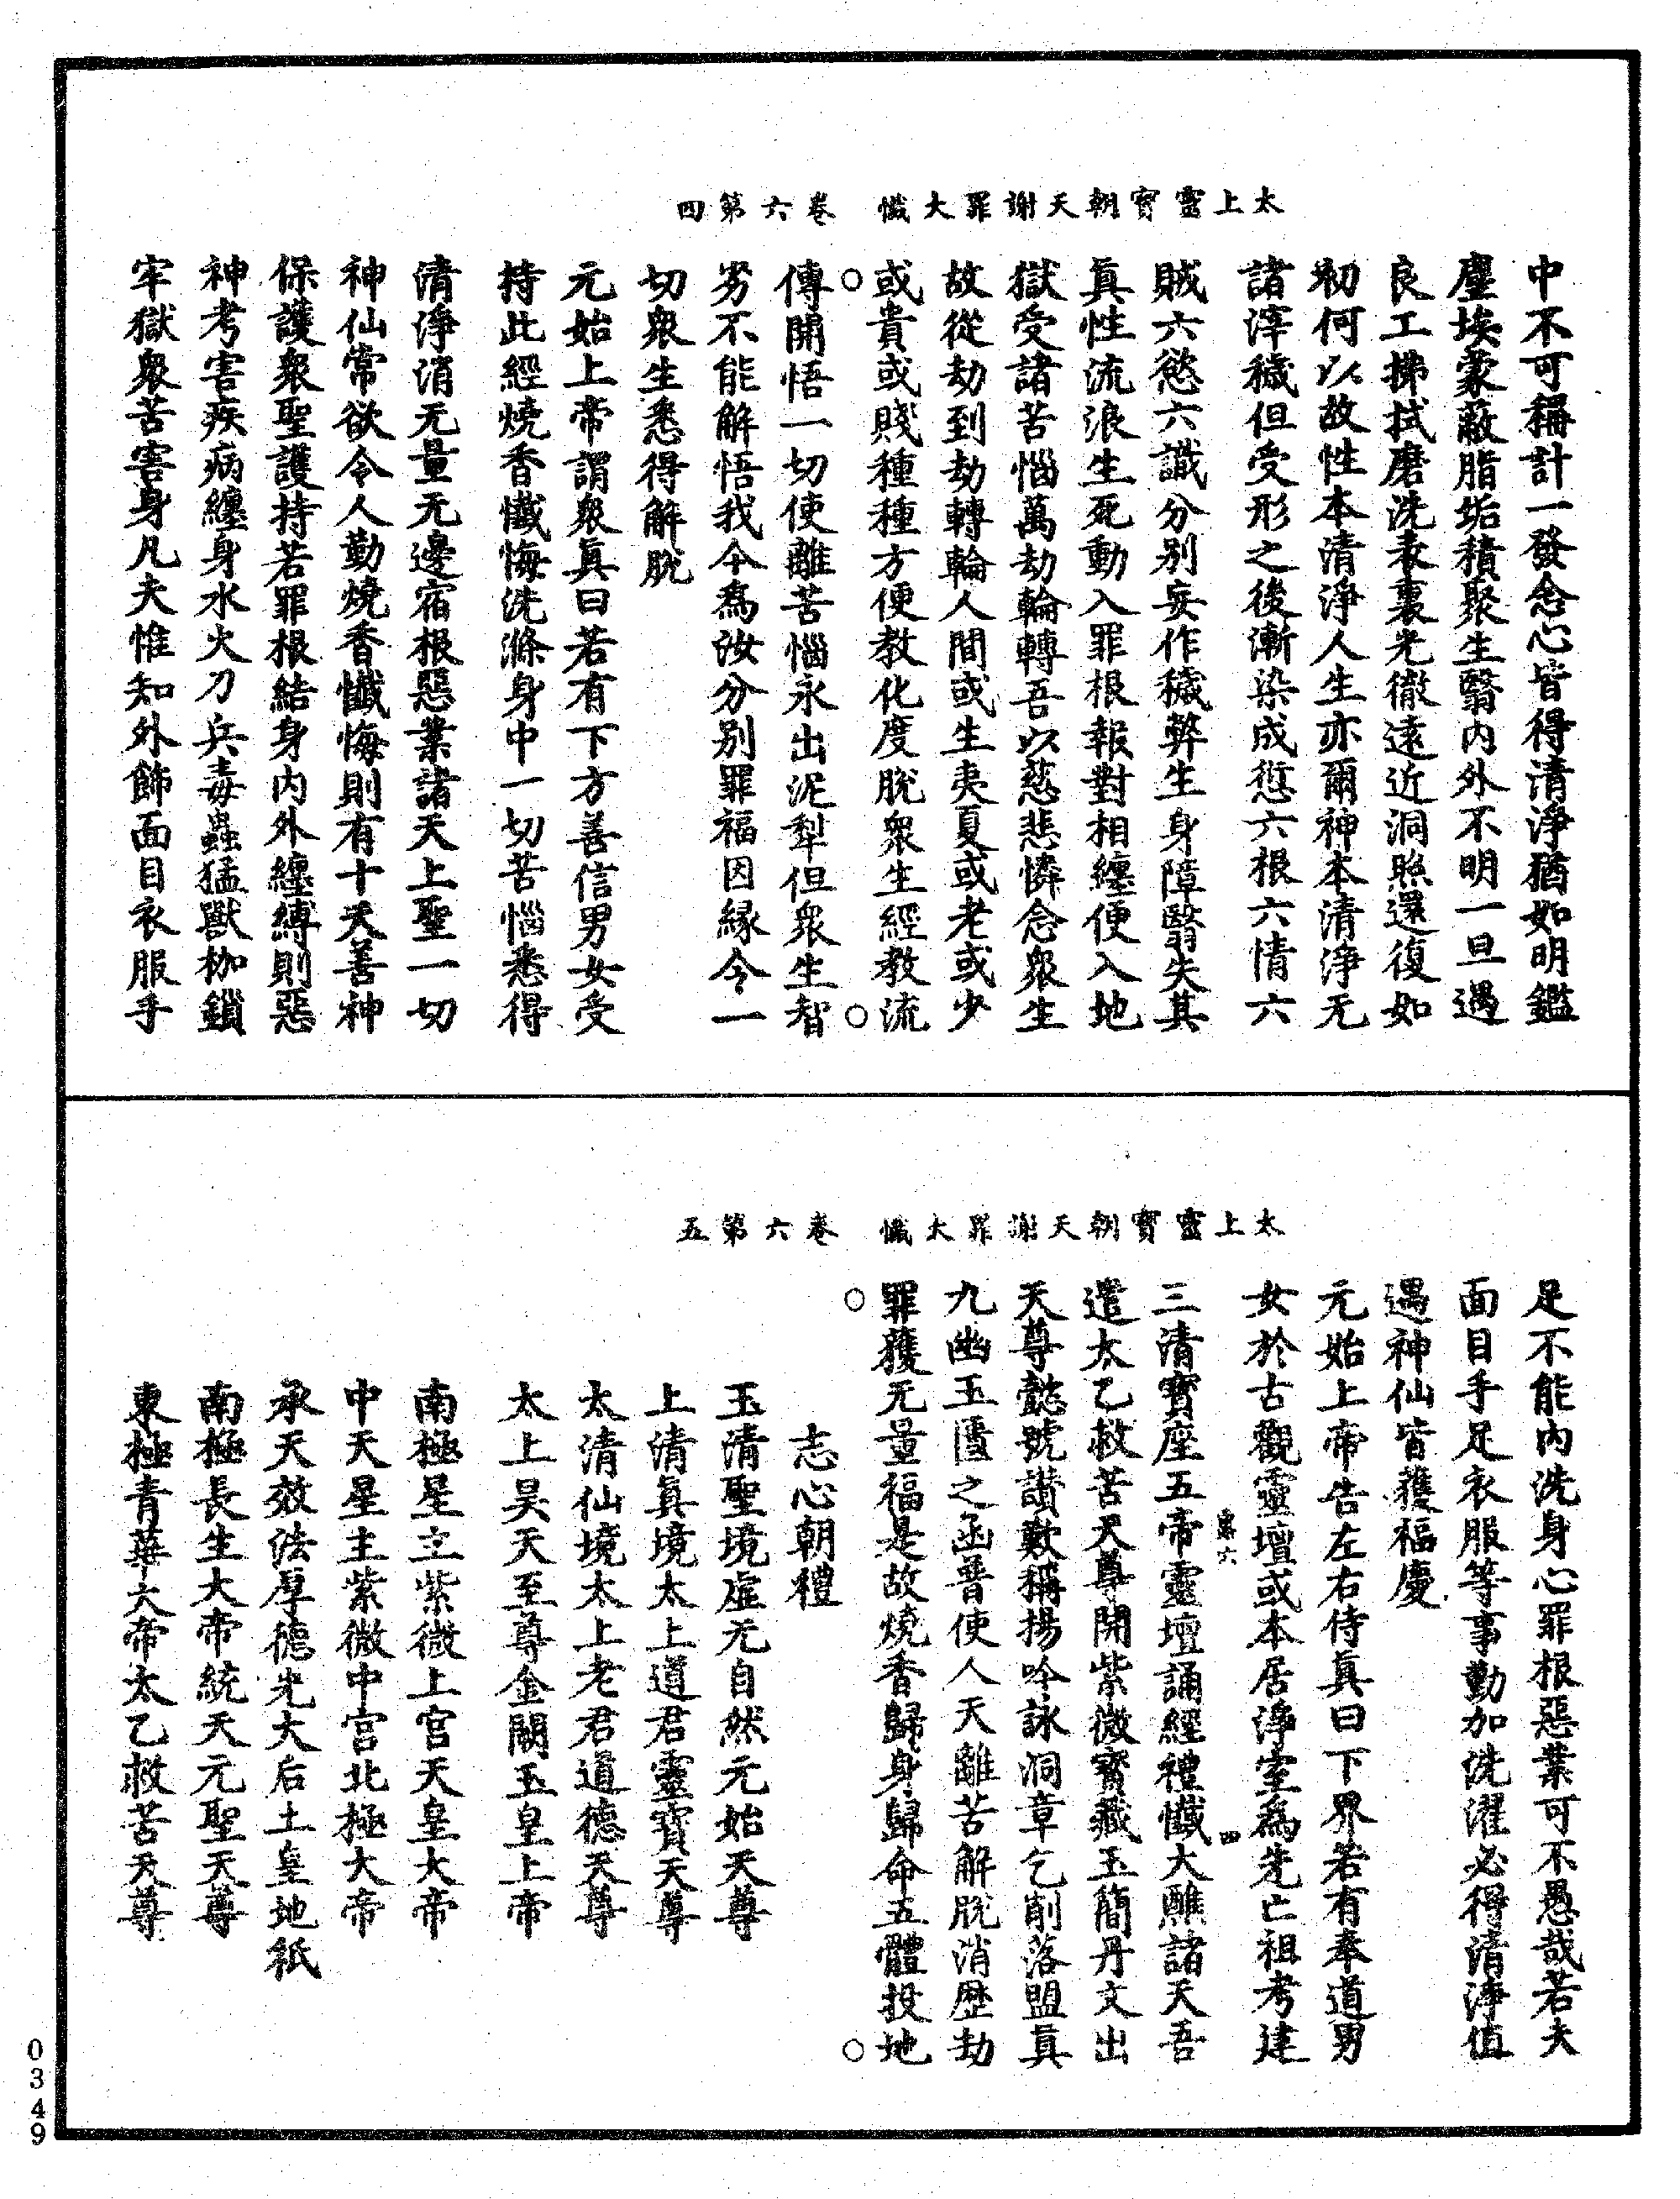 太上靈寶朝天謝罪大懺　卷六第四
中不可稱計一發念心皆得清淨猶如明鑑
塵埃蒙蔽脂垢積聚生翳內外不明一旦遇
良工拂拭磨洗表裏光徹遠近洞照還復如
初何以故性本清淨人生亦爾神本清淨无
諸滓穢但受形之後漸染成愆六根六情六
賊六慾六識分別妄作穢弊生身障翳失其
真性流浪生死動入罪根報對相纏便入地
獄受諸苦惱萬劫輪轉吾以慈悲憐念衆生
故從劫到劫轉輪人間或生夷夏或老或少
或貴或賤種種方便教化度脫衆生經教流
傳開悟一切使離苦惱永出泥犁但衆生智
劣不能解悟我今為汝分別罪福因緣令一
切衆生悉得解脫
元始上帝謂衆真曰若有下方善信男女受
持此經燒香懺悔洗滌身中一切苦惱悉得
清淨消无量无邊宿根惡業諸天上聖一切
神仙常欲令人勤燒香懺悔則有十天善神
保護衆聖護持若罪根結身內外纏縛則惡
神考害疾病纏身水火刀兵毒蟲猛獸枷鎖
牢獄衆苦害身凡夫惟知外飾面目衣服手
太上靈寶朝天謝罪大懺　卷六第五
足不能內洗身心罪根惡業可不愚哉若夫
面目手足衣服等事勤加洗濯必得清淨值
遇神仙皆獲福慶
元始上帝告左右侍真曰下界若有奉道男
女於古觀靈壇或本居淨室為先亡祖考建
三清寶座五帝靈壇誦經禮懺大醮諸天吾
遣太乙救苦天尊開紫微寶藏玉簡丹文出
天尊懿號讚歎稱揚吟詠洞章乞削落盟真
九幽玉匱之函普使人天離苦解脫消歷劫
罪獲无量福是故燒香歸身歸命五體投地
志心朝禮
玉清聖境虛无自然元始天尊
上清真境太上道君靈寶天尊
太清仙境太上老君道德天尊
太上昊天至尊金闕玉皇上帝
南極星主紫微上宮天皇大帝
中天星主紫微中宮北極大帝
承天效法厚德光大后土皇地祇
南極長生大帝統天元聖天尊
東極青華大帝太乙救苦天尊
0349